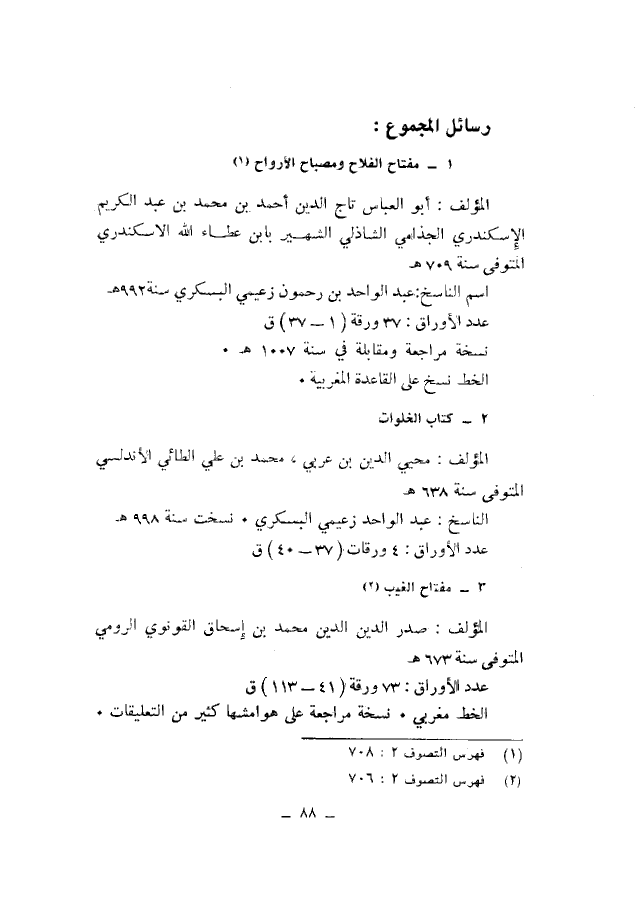 رسائل المجموع :
١ ــ مفتاح الفلاح ومصباح الأرواح (١)
المؤلف : أبو العباس تاج الدين أحمد بن محمد بن عبد الكريم
الإسكندري الجذامي الشاذلي الشهير بابن عطاء الله الاسكندري
المتوفى سنة ٧٠٩ هـ
اسم الناسخ:عبد الواحد بن رحمون زعيمي البسكري سنة ٩٩٢هـ
عدد الأوراق : ٣٧ ورقة ( ١ ــ ٣٧ ) ق
نسخة مراجعة ومقابلة في سنة ١٠٠٧ هـ ٠
الخط نسخ على القاعدة المغربية ٠
٢ ــ كتاب الخلوات
المؤلف : محيي الدين بن عربي ، محمد بن علي الطائي الأندلسي
المتوفى سنة ٦٣٨ هـ
الناسخ : عبد الواحد زعيمي البسكري ٠ نسخت سنة ٩٩٨ هـ
عدد الأوراق : ٤ ورقات ( ٣٧ ــ ٤٠ ) ق
٣ ــ مفتاح الغيب (٢)
المؤلف : صدر الدين الدين محمد بن إسحاق القونوي الرومي
المتوفى سنة ٦٧٣ هـ
عدد الأوراق : ٧٣ ورقة ( ٤١ ــ ١١٣ ) ق
الخط مغربي ٠ نسخة مراجعة على هوامشها كثير من التعليقات ٠
(١) فهرس التصوف ٢ : ٧٠٨
(٢) فهرس التصوف ٢ : ٧٠٦
ــ ٨٨ ــ